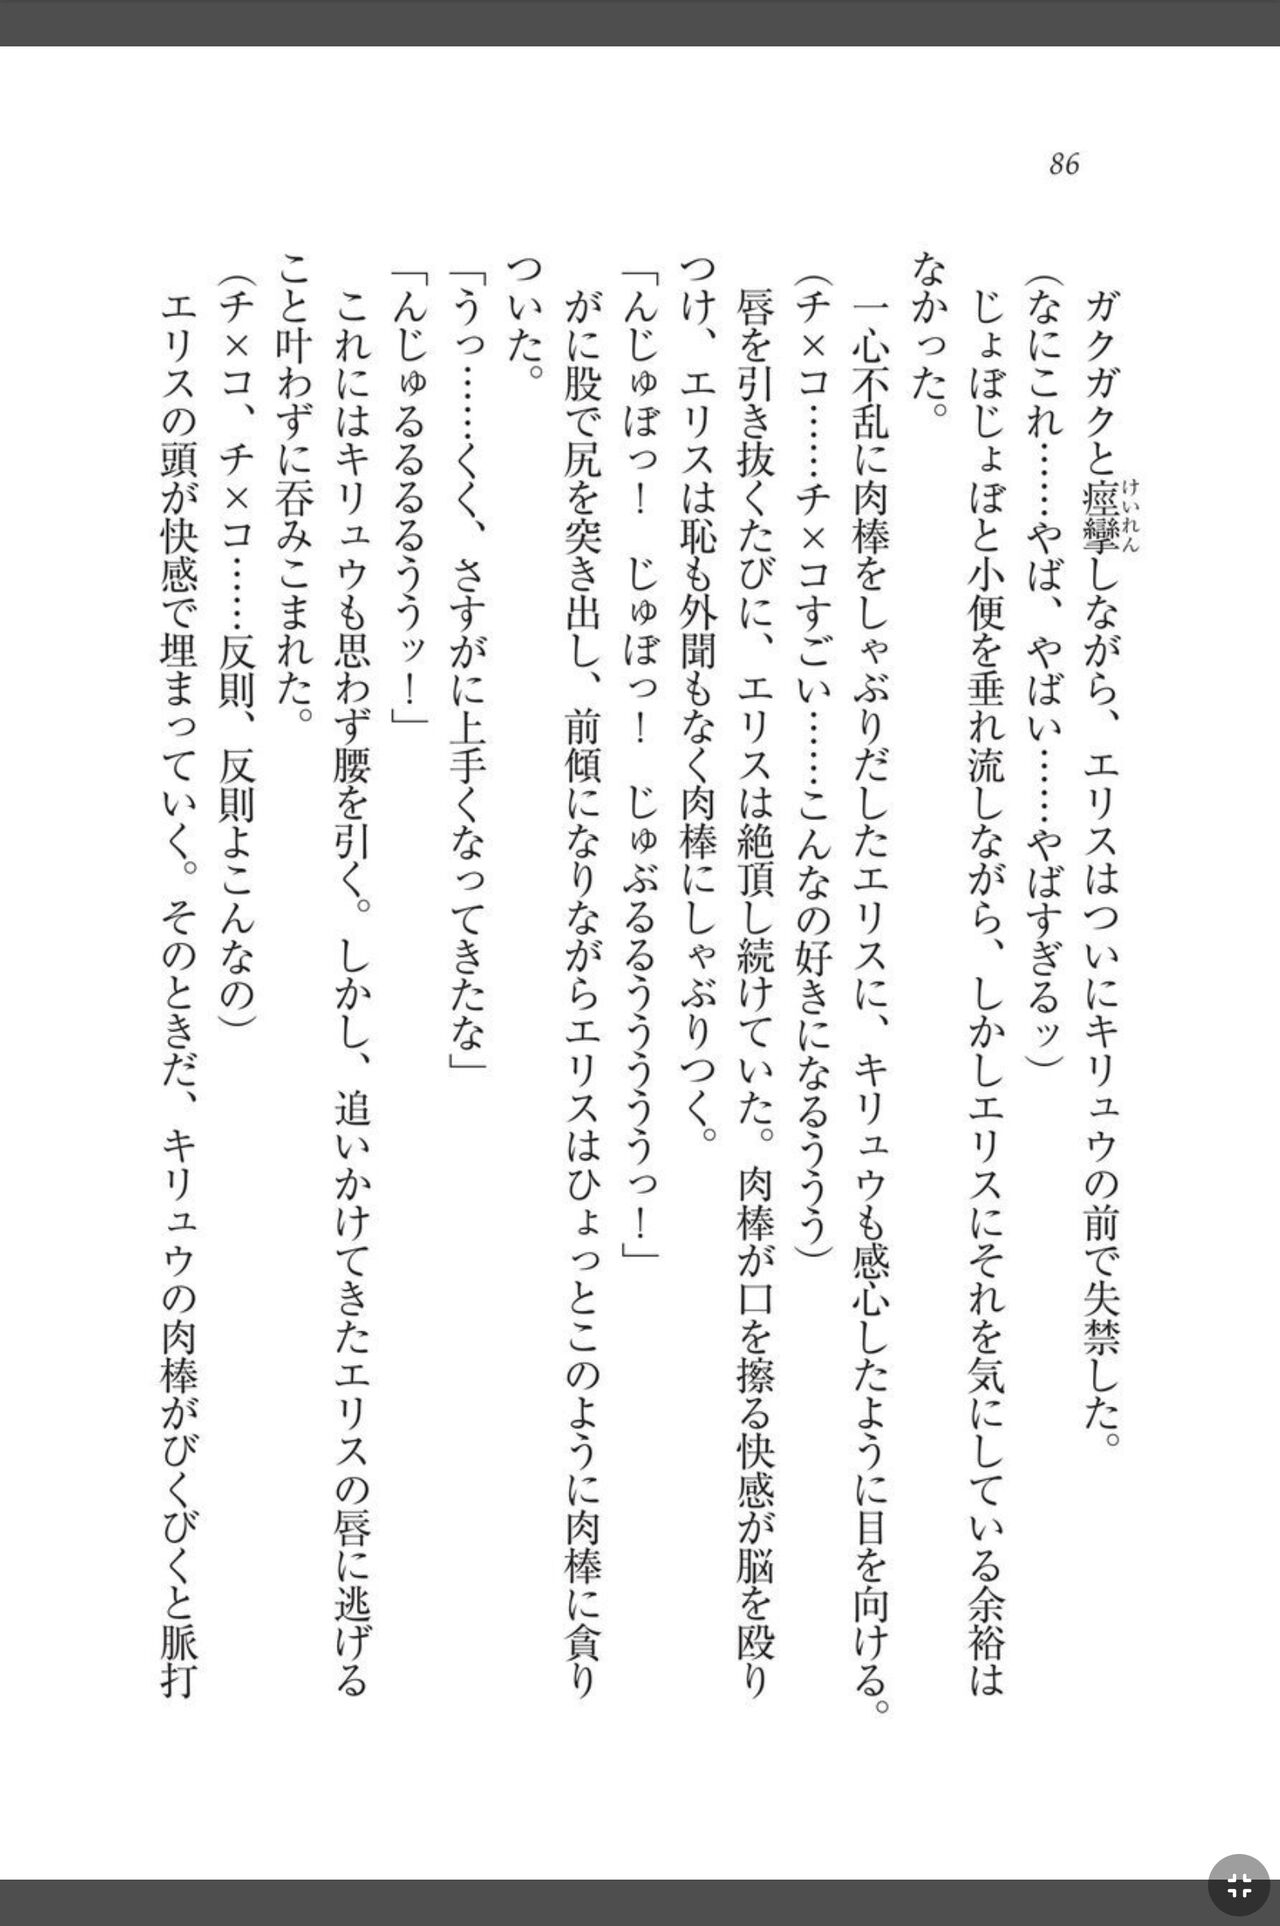 86
ガクガクと痙攣しながら、エリスはついにキリュウの前で失禁した。
けいれん
（なにこれ……やば、やばい……やばすぎるッ）
じょぼじょぼと小便を垂れ流しながら、しかしエリスにそれを気にしている余裕は
なかった。
一心不乱に肉棒をしゃぶりだしたエリスに、キリュウも感心したように目を向ける。
（チ×コ……チ×コすごい……こんなの好きになるううう）
唇を引き抜くたびに、エリスは絶頂し続けていた。肉棒が口を擦る快感が脳を殴り
つけ、エリスは恥も外聞もなく肉棒にしゃぶりつく。
「んじゅぼっ！　じゅぼっ！　じゅぶるるうううううっ！」
がに股で尻を突き出し、前傾になりながらエリスはひょっとこのように肉棒に貪り
ついた。
「うっ……くく、さすがに上手くなってきたな」
「んじゅるるるるううッ！」
これにはキリュウも思わず腰を引く。しかし、追いかけてきたエリスの唇に逃げる
こと叶わずに呑みこまれた。
（チ×コ、チ×コ……反則、反則よこんなの）
エリスの頭が快感で埋まっていく。そのときだ、キリュウの肉棒がびくびくと脈打